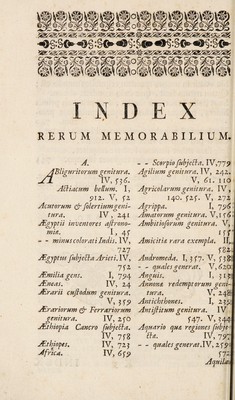 INDEX
RERUM MEMORABILIUM.
A.
ABliguritorum genitura.
IV, 536.
Actiacum bellum. I,
912. V, 52
Acutorum & solertium geni-
tura. IV, 241
Ægyptii inventores astrono-
miæ. I, 45
- - minus colorati Indis. IV,
727
Ægyptus subjecta Arieti. IV,
752
Æmilia gens. I, 794
Æneas. IV, 24
Ærarii custodum genitura.
V, 359
Ærariorum & Ferrariorum
genitura. IV, 250
Æthiopia Cancro subjecta.
IV, 758
Æthiopes. IV, 723
Africa. IV, 659
- - Scorpio subjecta. IV, 779
Agilium genitura. IV, 242.
V, 61. 110
Agricolarum genitura. IV,
140. 525. V, 272
Agrippa. I, 796
Amatorum genitura. V, 156
Ambitiosorum genitura. V,
61.
Amicitiæ rara exempla. II,
582
Andromeda. I, 357. V,
- - quales generat. V, 620
Anguis. I, 332
Annonæ redemptorum geni-
tura. V, 248
Antichthones. I, 238
Antistitum genitura. IV,
547. V, 344
Aquario quæ regiones subje-
ctæ. IV, 797
- - quales generat. IV, 259
572
Aquila